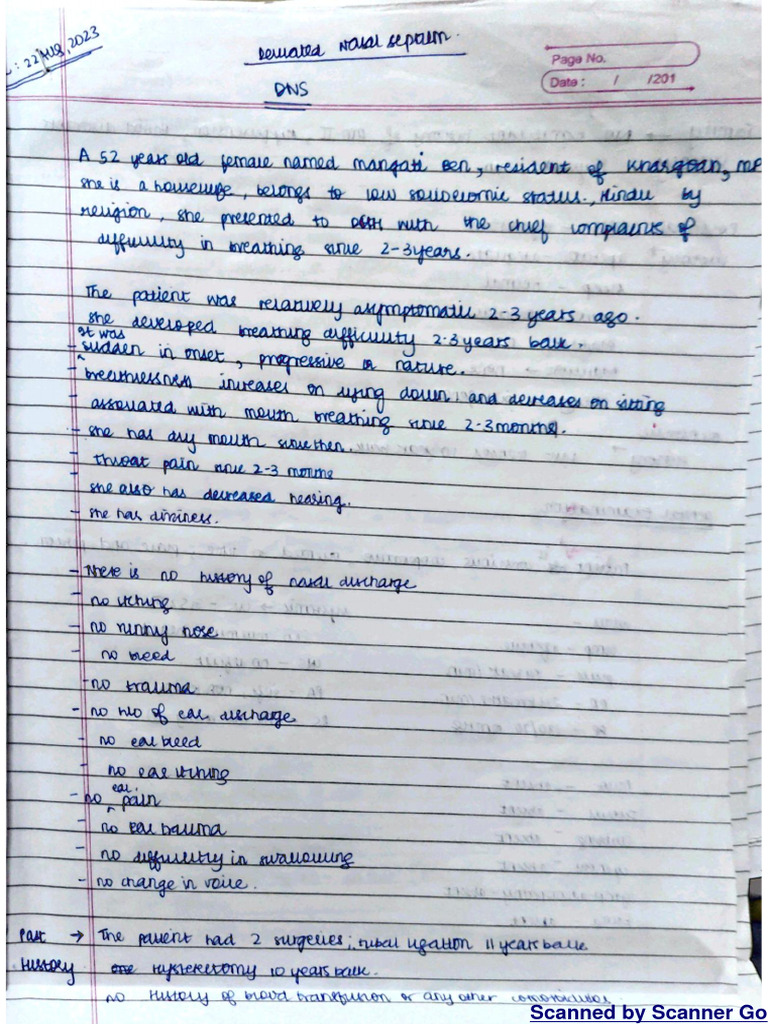 : 22 Aug, 2023
Deviated Nasal Septum.
DNS
Page No.
Date : / /201
A 52 years old female named Mangati Ben, resident of Khargoan, MP
she is a housewife, belongs to low socioeconomic status., Hindu by
religion, she presented to with the chief complaints of
difficulty in breathing since 2-3 years.
The patient was relatively asymptomatic 2-3 years ago.
she developed breathing difficulty 2-3 years back.
It was
- sudden in onset, progressive in nature.
- breathlessness increases on lying down and decreases on sitting
- associated with mouth breathing since 2-3 months.
- she has dry mouth since then.
- throat pain since 2-3 months
she also has decreased hearing.
- she has dizziness.
- There is no history of nasal discharge
- no itching
- no runny nose
- no bleed
- no trauma
- no h/o of ear discharge
- no ear bleed
- no ear itching
- no ear pain
- no ear trauma
- no difficulty in swallowing
- no change in voice.
Past → The patient had 2 surgeries; tubal ligation 11 years back
History hysterectomy 10 years back.
no history of blood transfusion or any other comorbidities
Scanned by Scanner Go